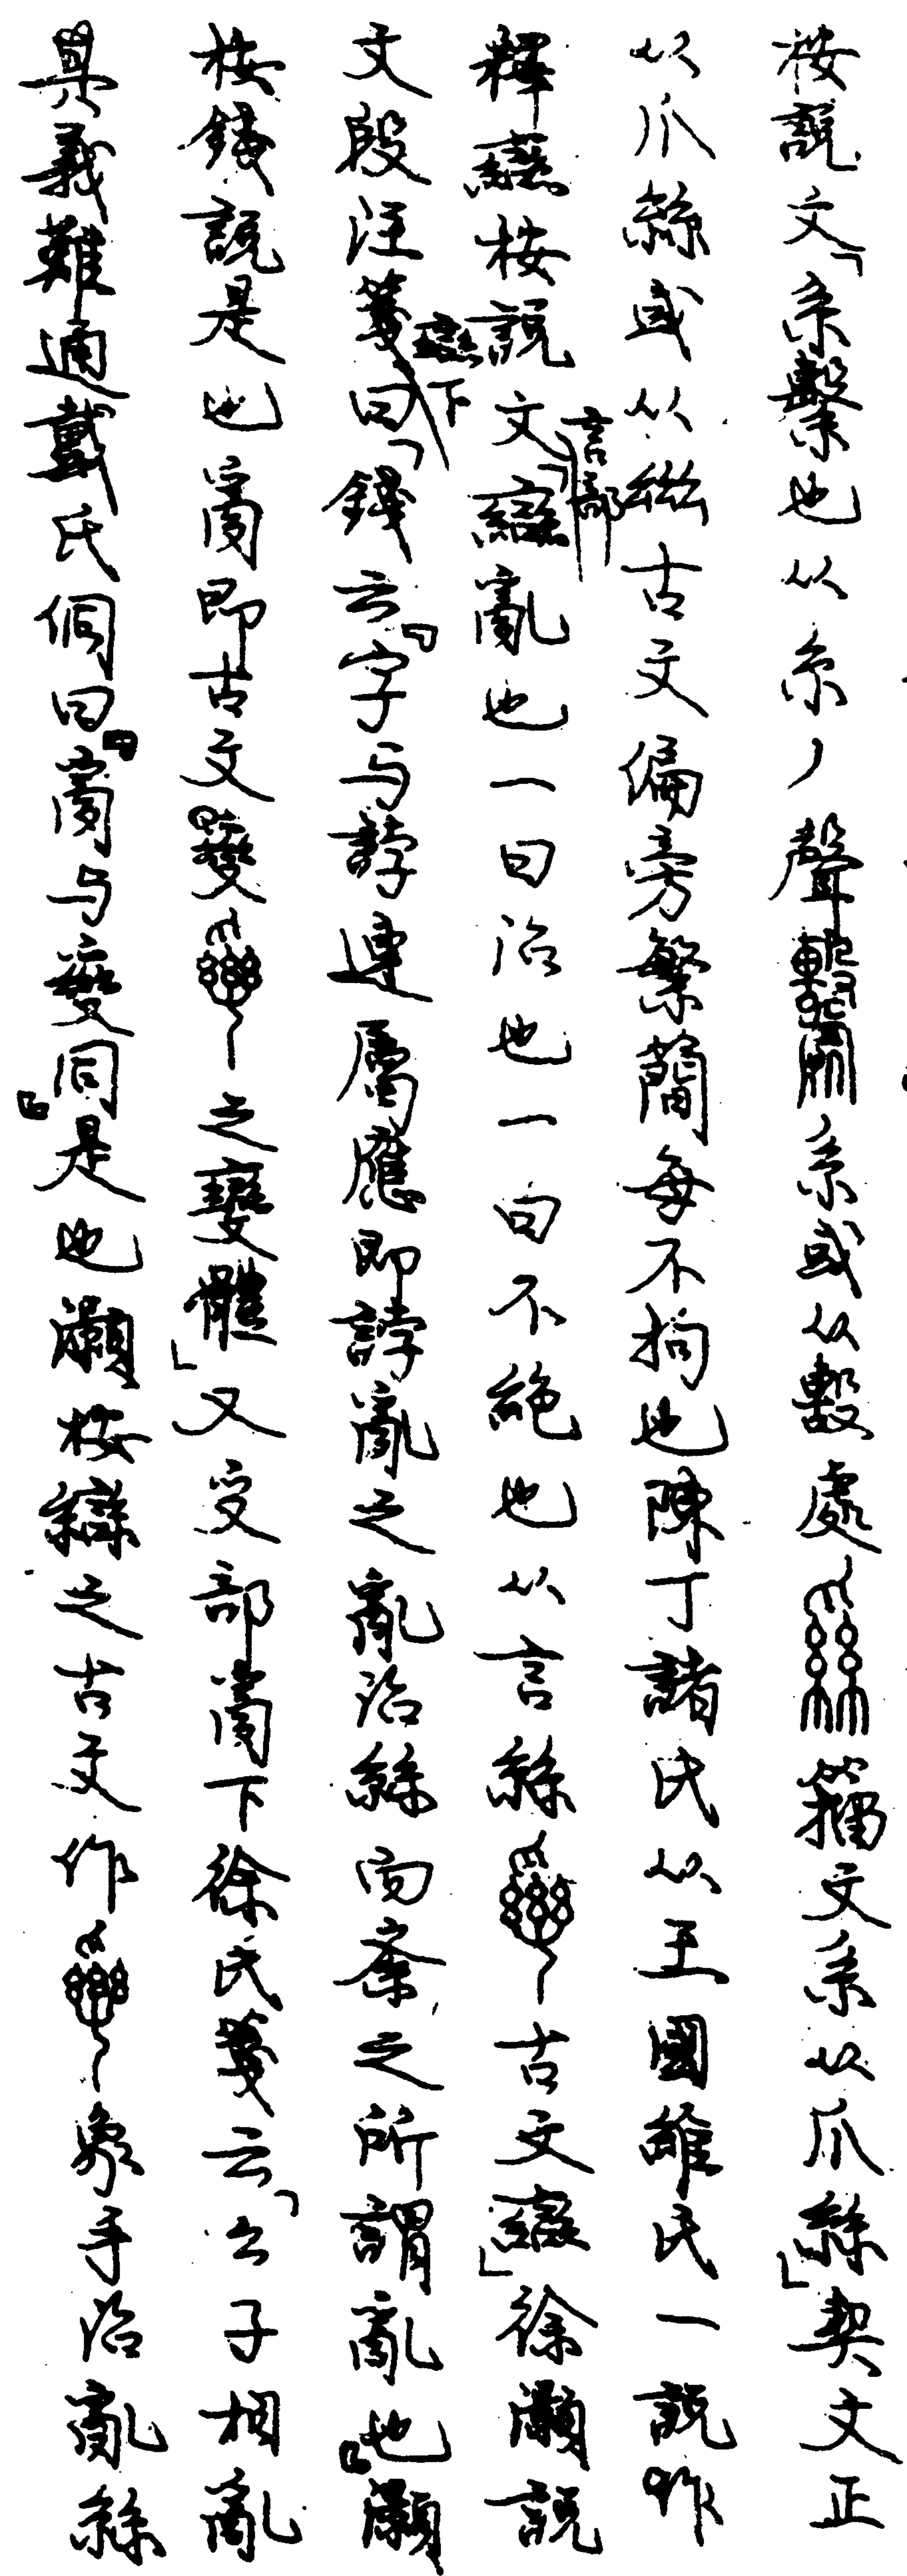 桉說文「系繫也从糸丿聲系或从毄處籀文系从爪絲」契文正
从爪絲或从𢆶古文偏旁繁簡每不拘也陳丁諸氏从王國維氏一說作
釋䜌桉說文言部「䜌亂也一曰治也一曰不絕也从言絲古文䜌」徐灝說
文段注箋䜌下曰「錢云『字与誖連屬應即誖亂之亂治絲而棼之所謂亂也』灝
桉錢說是也𤔔即古文之變體」又𠬪部𤔔下徐氏箋云「幺子相亂
其義難通戴氏侗曰『𤔔与䜌同』是也灝桉䜌之古文作象手治亂絲